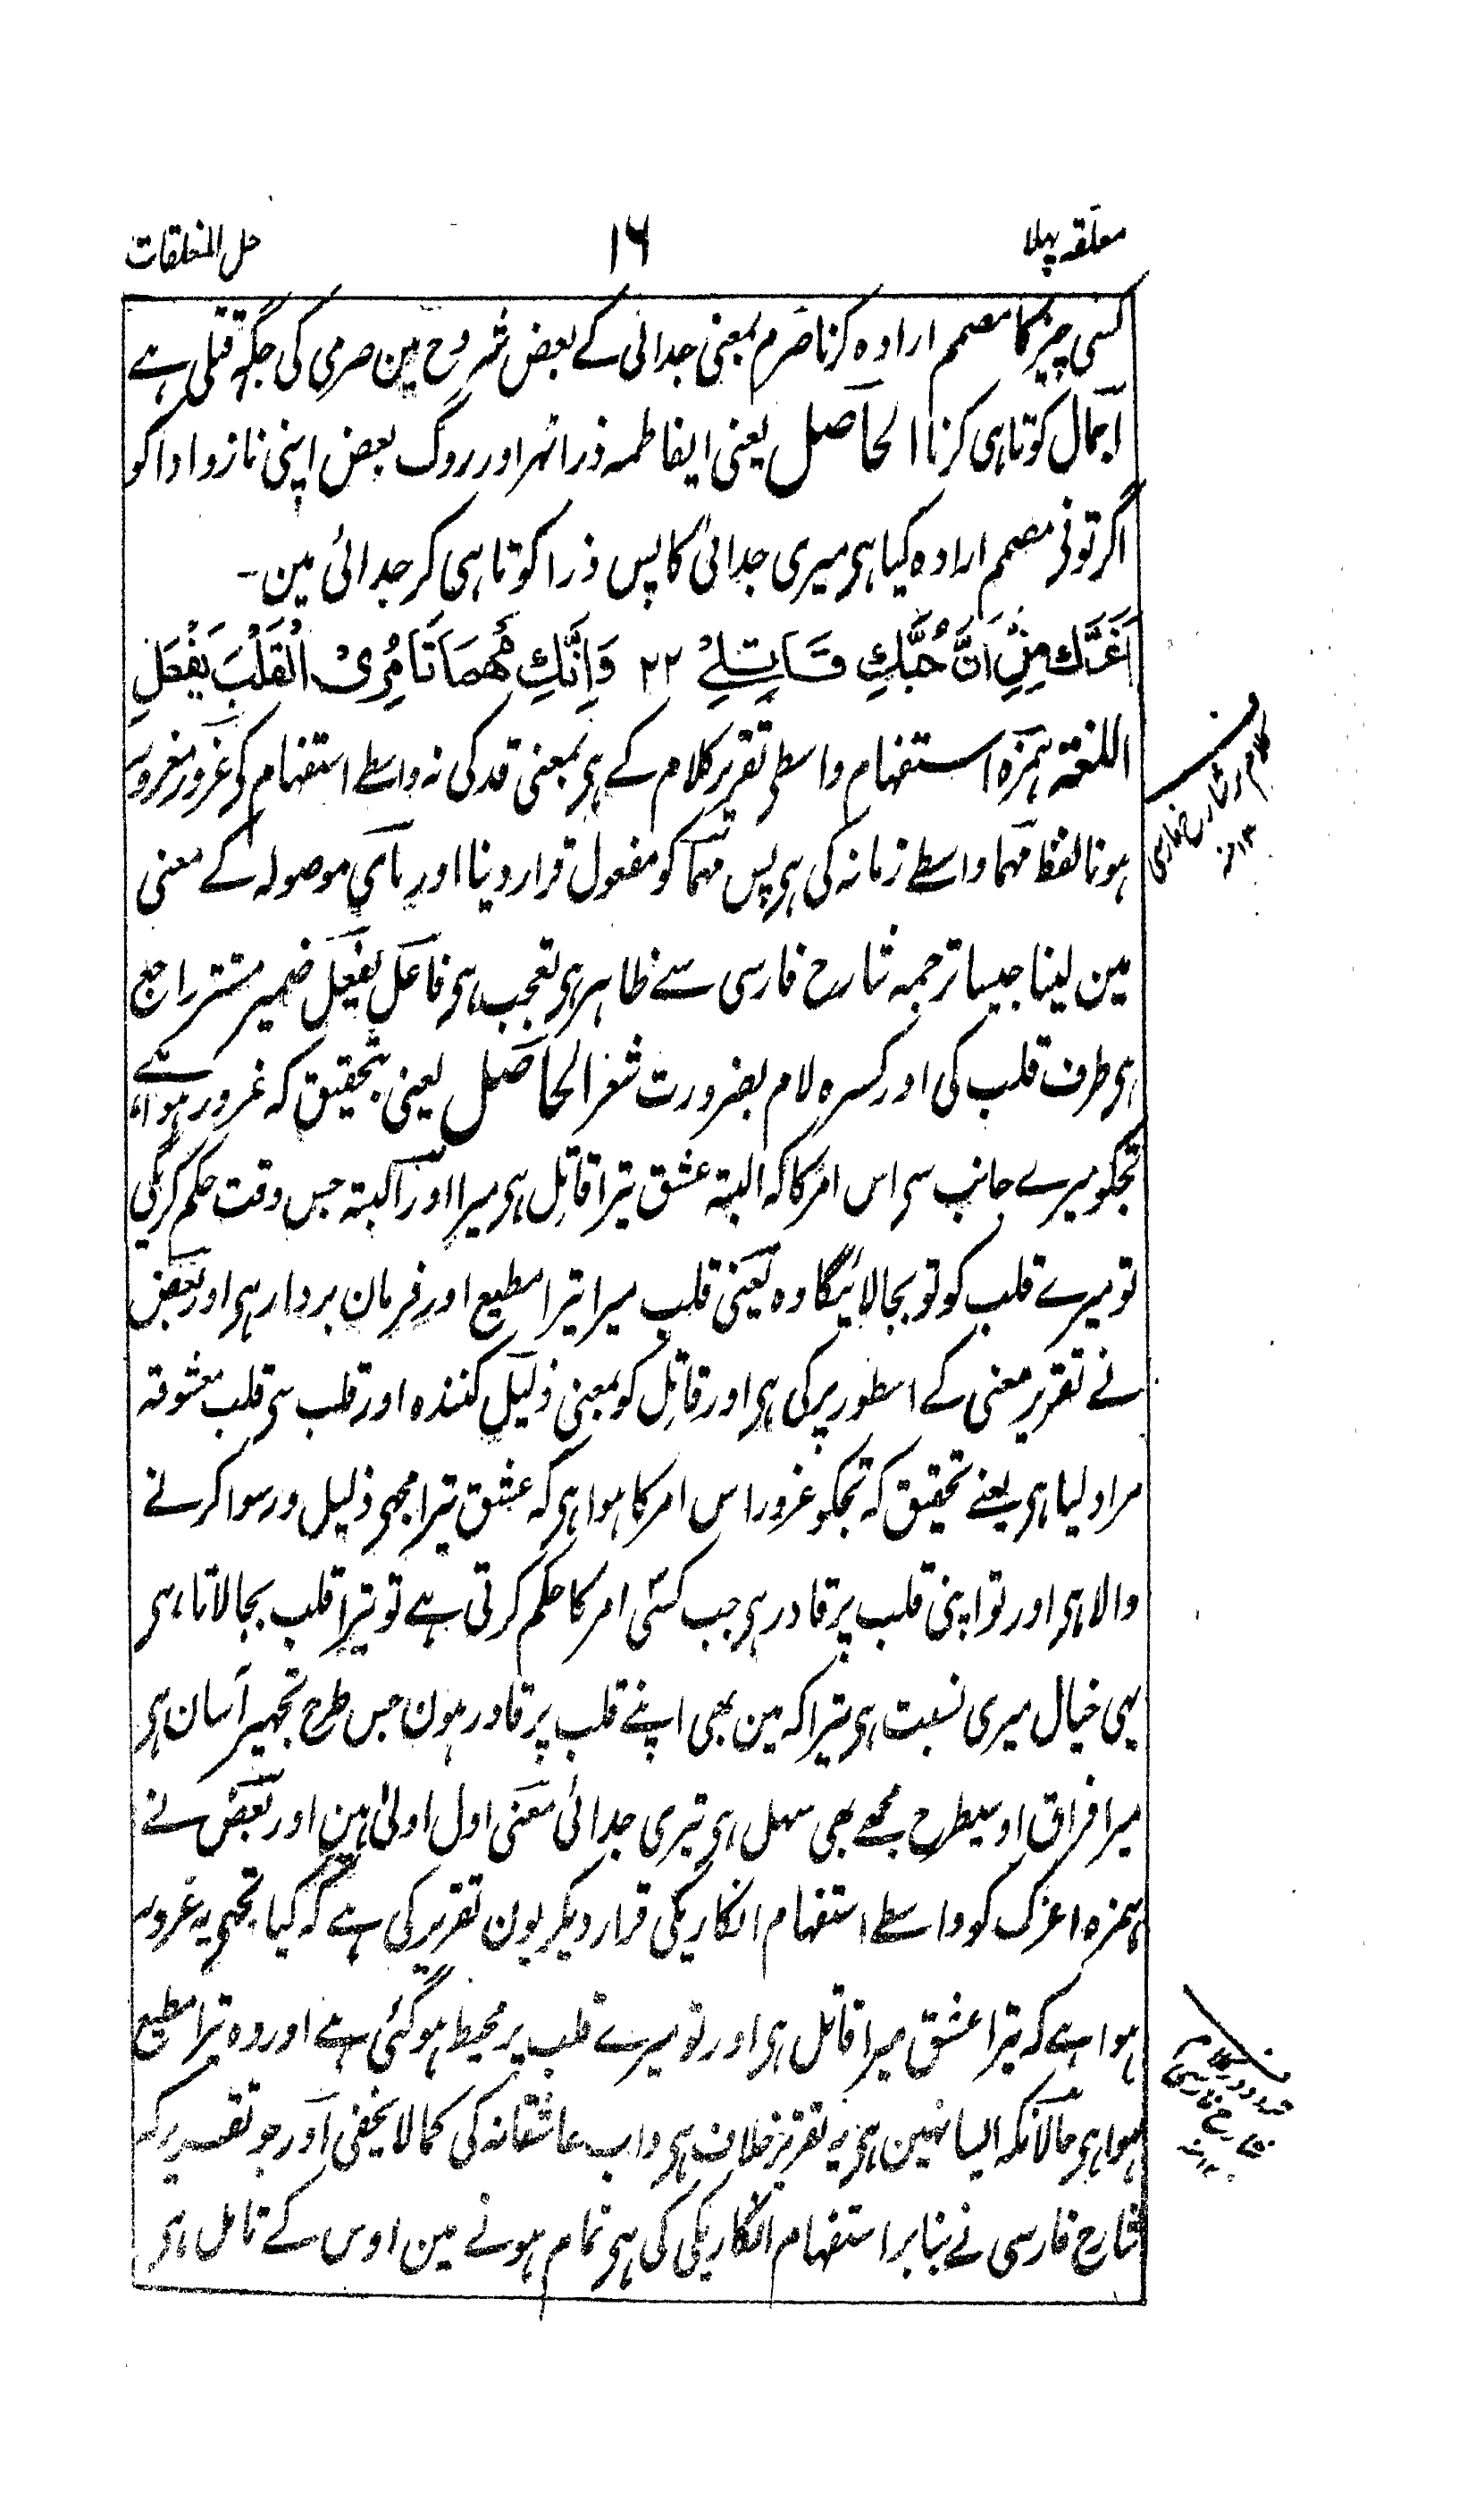 معلقہ پہلا
۱۶
حل المغلقات
کسی چیز کا مصمم ارادہ کرنا صَرم بمعنی جدائی کے بعض شروح مین صرمی کی جگہ قتلی ہے
اجمال کوتاہی کرنا الحاصل یعنی ایفاطمہ ذرا ٹہر اور روک بعض اپنی ناز و ادا کو
اگر تونی مصمم ارادہ کیا ہی میری جدائی کا پس ذرا کوتاہی کر جدائی مین۔
اَغَرَّكِ مِنِّی اَنَّ حُبَّكِ قَاتِلِیْ ۲۲ وَاِنَّكِ مَهْمَا تَامُرِیْ الْقَلْبَ یَفْعَلِ
اللغتہ ہمزہ استفہام واسطی تقریر کلام کے ہی بمعنی قد کی نہ واسطے استفہام کی غرور مغرور
ہونا لفظ مہما واسطے زمانہ کی ہی پس مہما کو مفعول قرار دینا اور مای موصولہ کے معنی
مین لینا جیسا ترجمہ شارح فارسی سے ظاہر ہی تعجب ہی فاعل یفعل ضمیر مستتر راجع
ہی طرف قلب کی اور کسرہ لام بضرورت شعر الحاصل یعنی بتحقیق کہ غرور ہوا ہے
تجکو میرے جانب سی اس امر کا کہ البتہ عشق تیرا قاتل ہی میرا اور البتہ جس وقت حکم کریگی
تو میرے قلب کو تو بجا لائیگا وہ یعنی قلب میرا تیرا مطیع اور فرمان بردار ہی اور بعض
نے تقریر معنی کے اسطور پر کی ہی اور قاتل کو بمعنی ذلیل کنندہ اور قلب سی قلب معشوقہ
مراد لیا ہی یعنے تحقیق کہ تجکو غرور اس امر کا ہوا ہی کہ عشق تیرا مجہی ذلیل و رسوا کرنے
والا ہی اور تو اپنی قلب پر قادر ہی جب کسی امر کا حکم کرتی ہے تو تیرا قلب بجا لاتا ہی
یہی خیال میری نسبت ہی تیرا کہ مین بھی اپنے قلب پر قادر ہون جس طرح تجہپر آسان ہی
میرا فراق اوسیطرح مجہے بھی سہل ہی تیری جدائی معنی اول اولیٰ ہین اور بعض نے
ہمزہ اغرک کو واسطے استفہام انکاریکی قرار دیکر یون تقریر کی ہے کہ کیا تجہی یہ غرور
ہوا ہے کہ تیرا عشق میرا قاتل ہی اور تو میرے قلب پر محیط ہو گئی ہے اور وہ تیرا مطیع
ہوا ہی حالانکہ ایسا نہین ہی یہ تقریر خلاف ہی داب عاشقانہ کی کما لا یخفی اور جو تقریر کہ
شارح فارسی نے بنابر استفہام انکاریکی کی ہی تمام ہونے مین اوس کے تامل ہی
کلام در شارح فارسی
۱۲ منہ
شارح فارسی